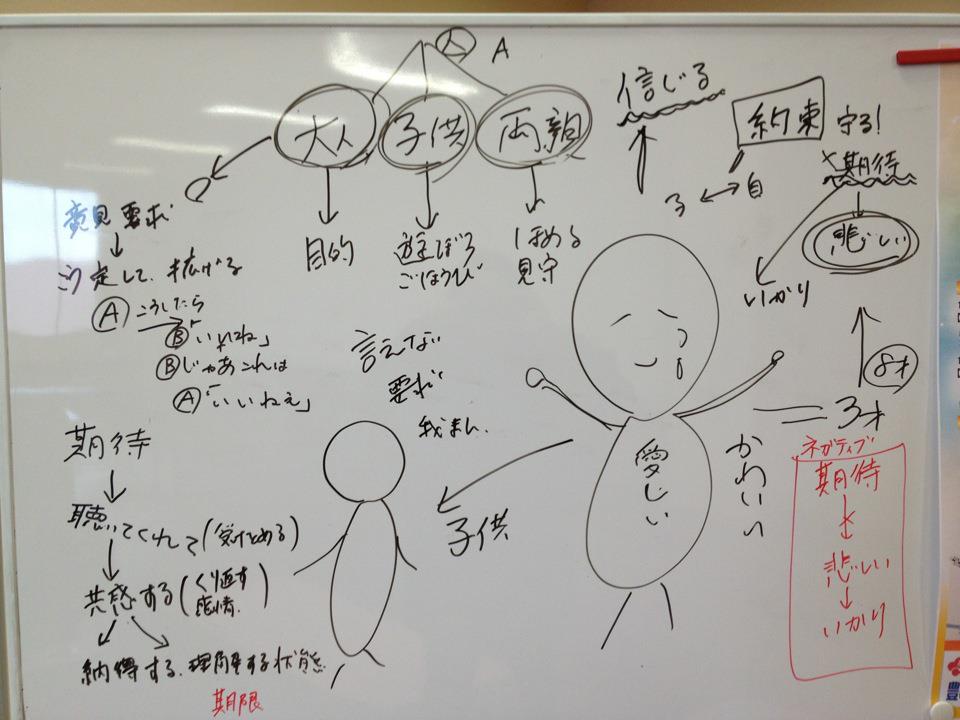 人 A
大人 子供 両親
信じる
約束 守る!
子 ↔ 自
×期待
悲しい
いかり
8才
3才
意見 要求
こう定して、拡げる
Ⓐ こうしたら
Ⓑ「いいね」
Ⓑ じゃあこれは
Ⓐ「いいねぇ」
目的
遊ぼう
ごほうび
ほめる
見守
言えない
要求
我まん
期待
聴いてくれて(受けとめる)
共感する(くり返す
感情)
納得する、理解する状態
期限
子供
愛じい
かわいい
ネガティブ
期待
×
悲しい
いかり
豊